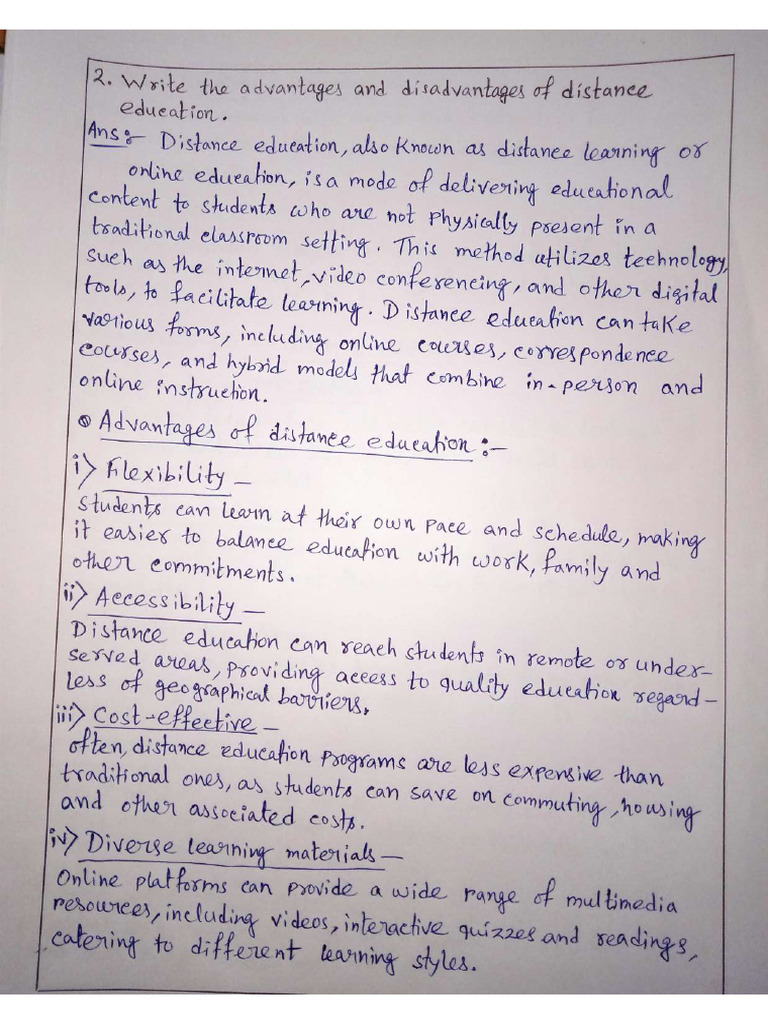 2. Write the advantages and disadvantages of distance
education.
Ans:- Distance education, also known as distance learning or
online education, is a mode of delivering educational
content to students who are not physically present in a
traditional classroom setting. This method utilizes technology,
such as the internet, video conferencing, and other digital
tools, to facilitate learning. Distance education can take
various forms, including online courses, correspondence
courses, and hybrid models that combine in-person and
online instruction.
Advantages of distance education:-
i) Flexibility -
Students can learn at their own pace and schedule, making
it easier to balance education with work, family and
other commitments.
ii) Accessibility -
Distance education can reach students in remote or under-
served areas, providing access to quality education regard-
less of geographical barriers.
iii) Cost-effective -
Often, distance education programs are less expensive than
traditional ones, as students can save on commuting, housing
and other associated costs.
iv) Diverse learning materials -
Online platforms can provide a wide range of multimedia
resources, including videos, interactive quizzes and readings,
catering to different learning styles.